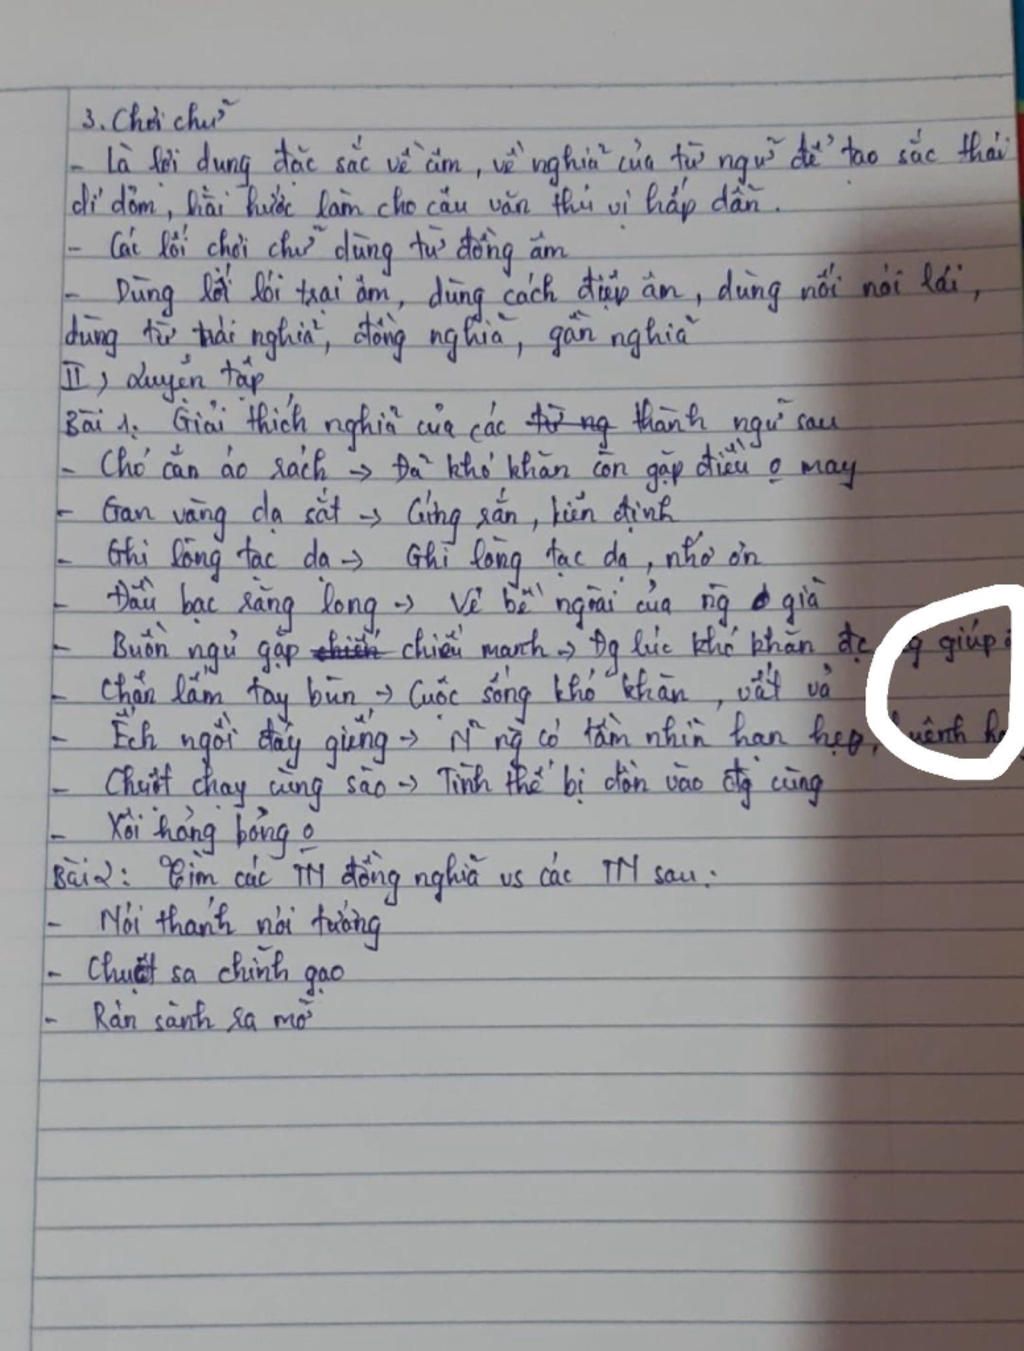 3. Chơi chữ
- Là lời dung đặc sắc về âm, về nghĩa của từ ngữ để tạo sắc thái
dí dỏm, hài hước làm cho câu văn thú vị hấp dẫn.
- Các lối chơi chữ dùng từ đồng âm
- Dùng lối lói trại âm, dùng cách điệp âm, dùng nối nói lái,
dùng từ trái nghĩa, đồng nghĩa, gần nghĩa
II, Luyện tập
Bài 1. Giải thích nghĩa của các từ ng thành ngữ sau
- Chó cắn áo rách → Đã khó khăn còn gặp điều o may
- Gan vàng dạ sắt → Cứng rắn, kiên định
- Ghi lòng tạc dạ → Ghi lòng tạc dạ, nhớ ơn
- Đầu bạc răng long → Vẻ bề ngoài của ng già
- Buồn ngủ gặp chiếu manh → Đg lúc khó khăn đc giúp
- Chân lấm tay bùn → Cuộc sống khó khăn, vất vả
- Ếch ngồi đáy giếng → N~ ng có tầm nhìn hạn hẹp, huênh
- Chuột chạy cùng sào → Tình thế bị dồn vào đg cùng
- Xôi hỏng bỏng o
Bài 2: Tìm các TN đồng nghĩa vs các TN sau:
- Nói thánh nói tướng
- Chuột sa chĩnh gạo
- Rán sành ra mỡ